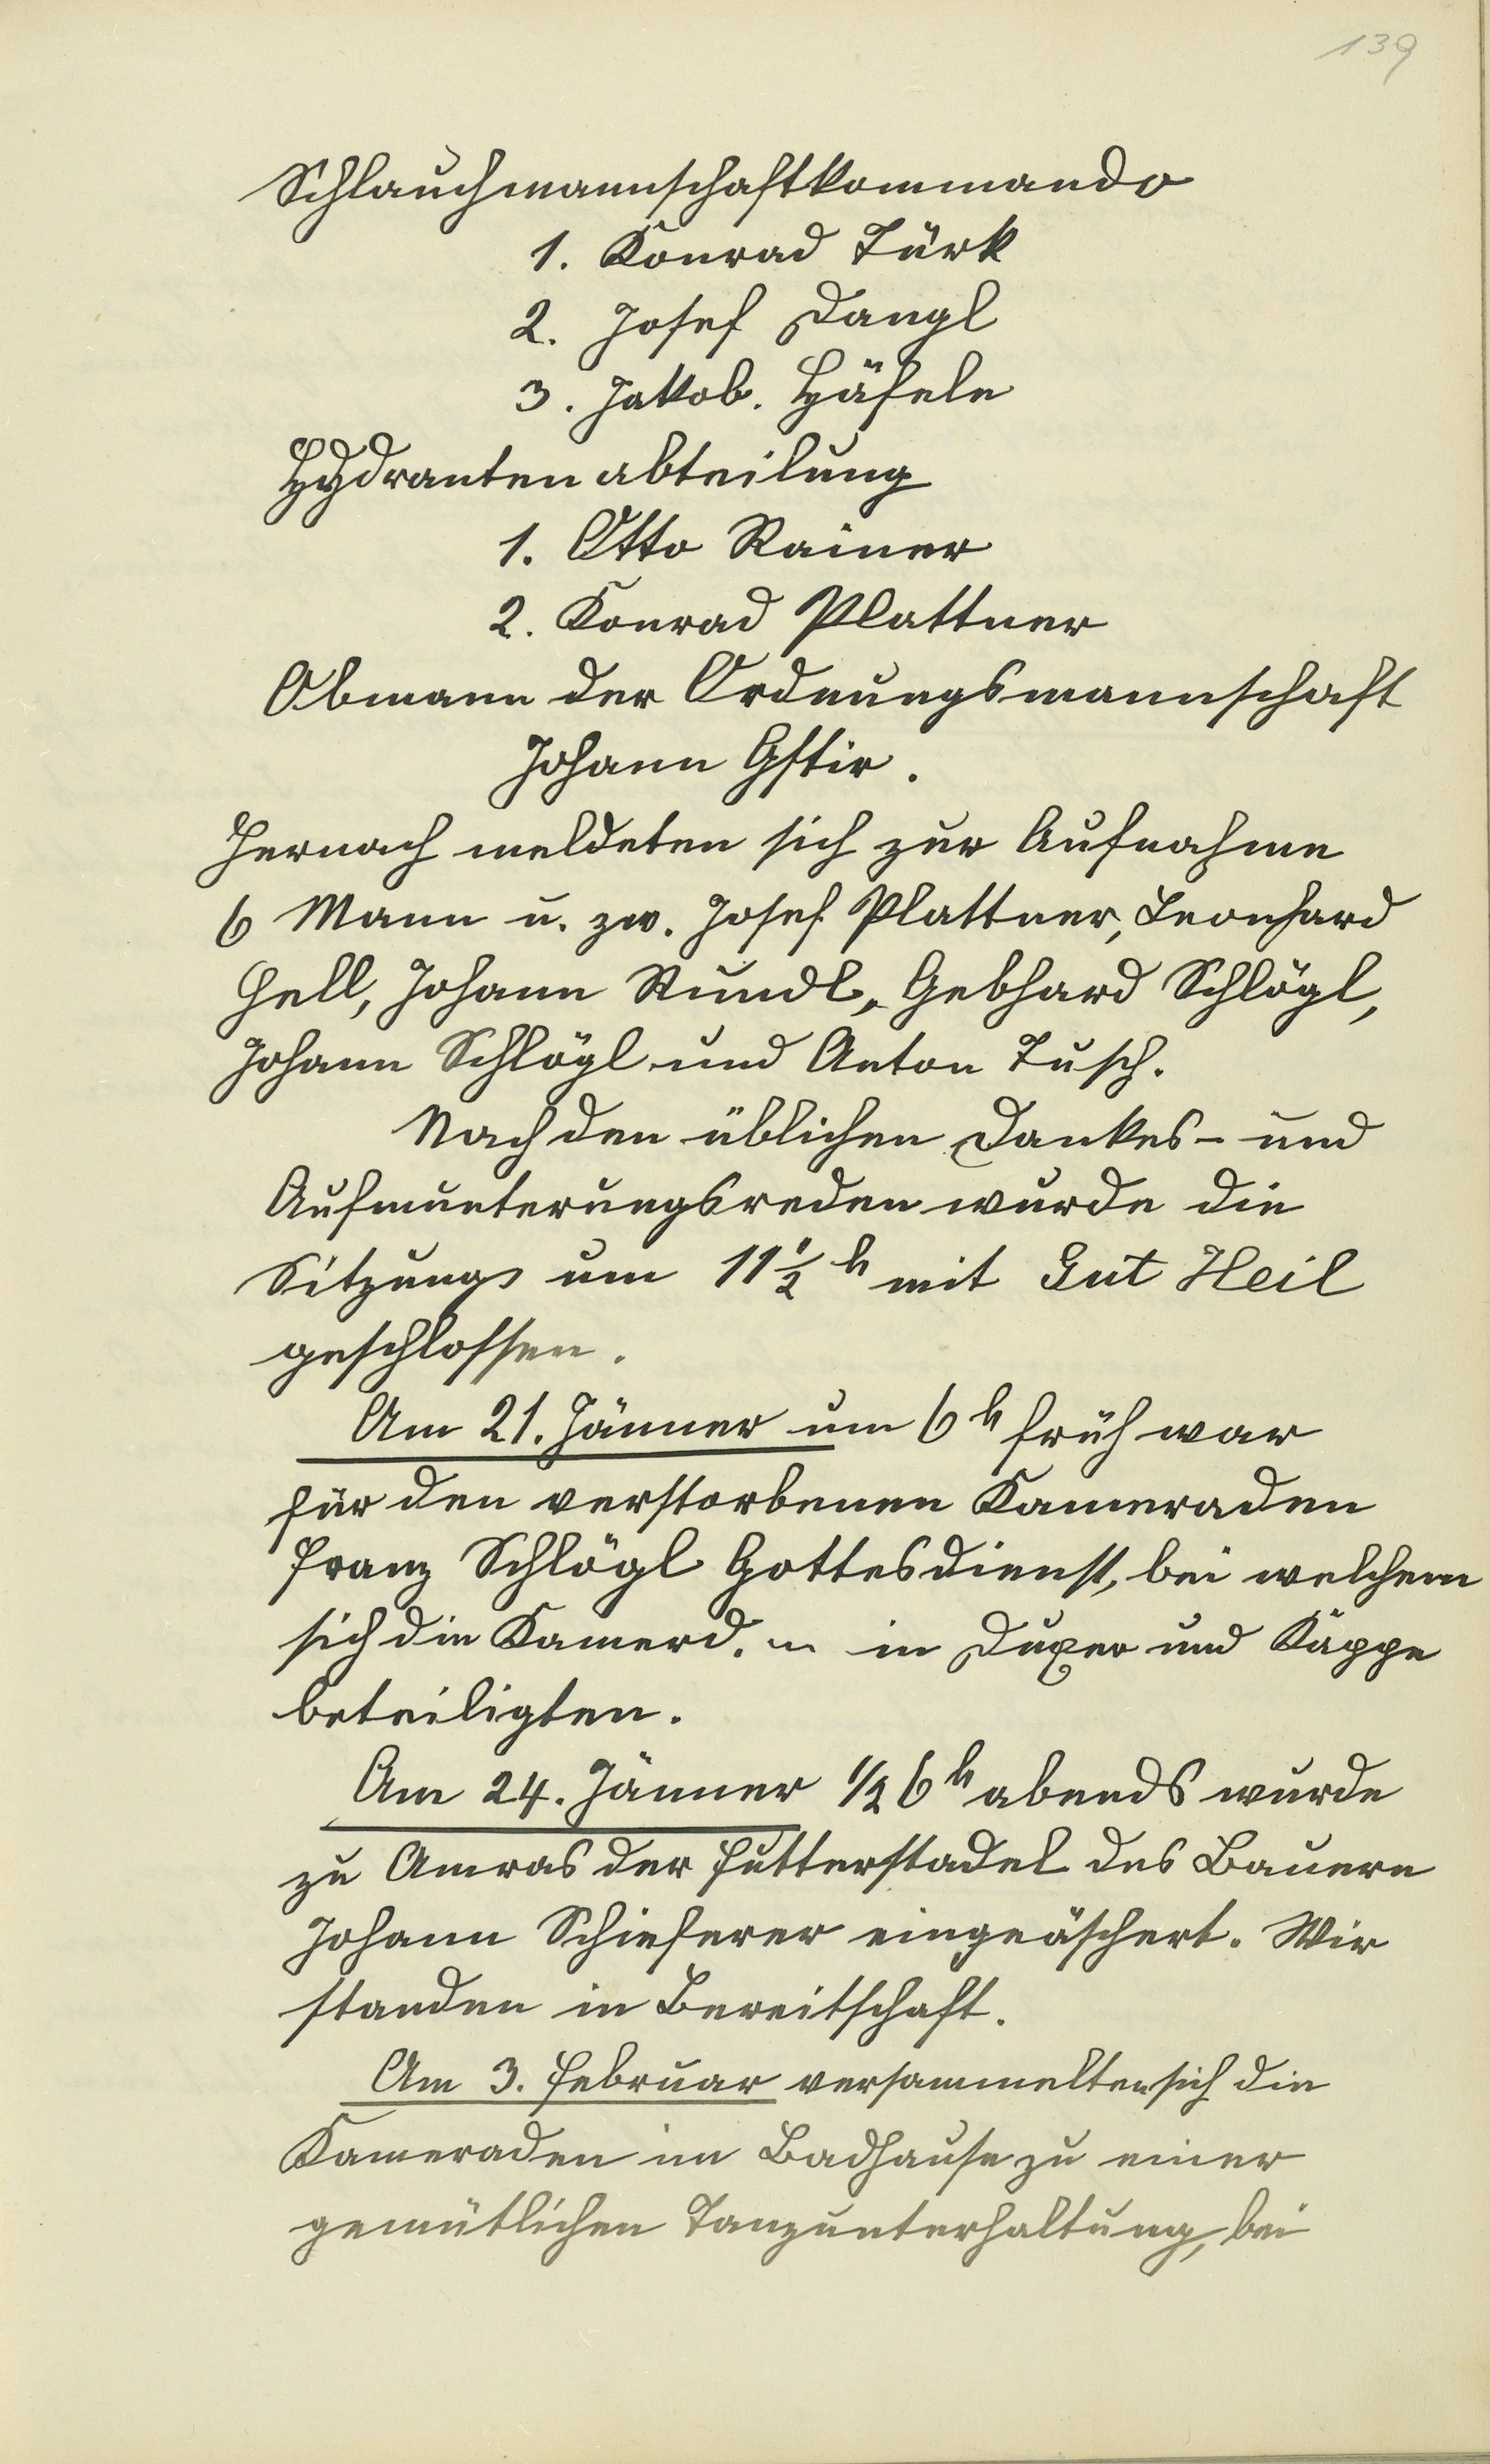 139
Schlauchmannschaftkommando
1. Konrad Türk
2. Josef Dangl
3. Jakob. Häfele
Hydrantenabteilung
1. Otto Rainer
2. Konrad Plattner
Obmann der Ordnungsmannschaft
Johann Gstir.
Hernach meldeten sich zur Aufnahme
6 Mann u. zw. Josef Plattner, Leonhard
Hell, Johann Rundl, Gebhard Schlögl,
Johann Schlögl und Anton Tusch.
Nach den üblichen Dankes- und
Aufmunterungsreden wurde die
Sitzung um 11 1/2 h mit Gut Heil
geschlossen.
Am 21. Jänner um 6 h früh war
für den verstorbenen Kameraden
Franz Schlögl Gottesdienst, bei welchem
sich die Kamerd. in Duxer und Kappe
beteiligten.
Am 24. Jänner 1/2 6 h abends wurde
zu Amras der Futterstadel des Bauern
Johann Schieferer eingeäschert. Wir
standen in Bereitschaft.
Am 3. Februar versammelten sich die
Kameraden im Badhause zu einer
gemütlichen Tanzunterhaltung, bei